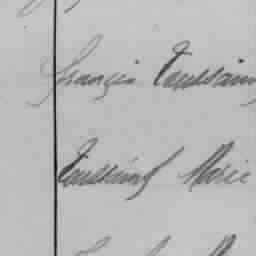 François Toussaint
Toussaint Marie